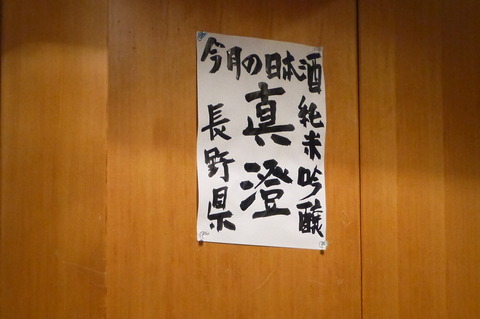 今月の日本酒
純米吟醸
真澄
長野県